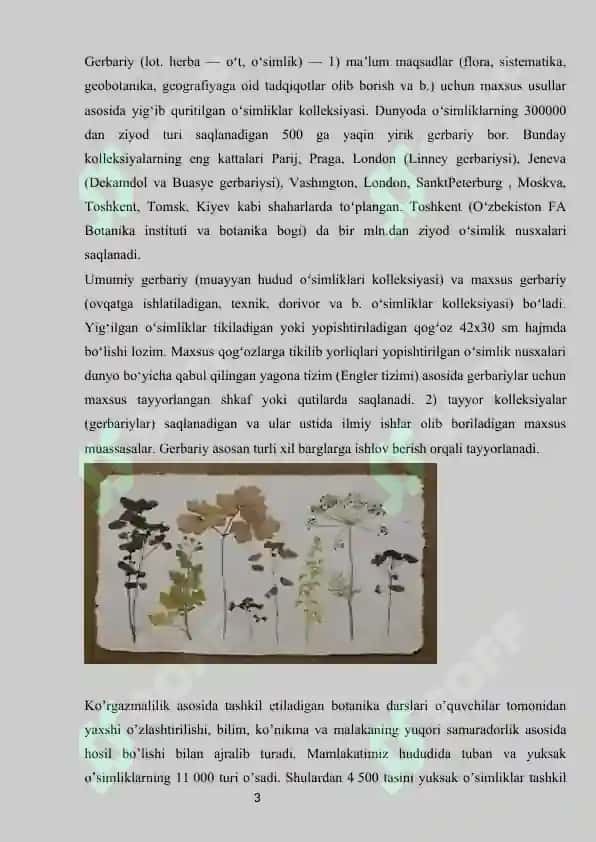 Gerbariy (lot. herba — oʻt, oʻsimlik) — 1) maʼlum maqsadlar (flora, sistematika,
geobotanika, geografiyaga oid tadqiqotlar olib borish va b.) uchun maxsus usullar
asosida yigʻib quritilgan oʻsimliklar kolleksiyasi. Dunyoda oʻsimliklarning 300000
dan ziyod turi saqlanadigan 500 ga yaqin yirik gerbariy bor. Bunday
kolleksiyalarning eng kattalari Parij, Praga, London (Linney gerbariysi), Jeneva
(Dekandol va Buasye gerbariysi), Vashington, London, SanktPeterburg , Moskva,
Toshkent, Tomsk, Kiyev kabi shaharlarda toʻplangan, Toshkent (Oʻzbekiston FA
Botanika instituti va botanika bogi) da bir mln.dan ziyod oʻsimlik nusxalari
saqlanadi.
Umumiy gerbariy (muayyan hudud oʻsimliklari kolleksiyasi) va maxsus gerbariy
(ovqatga ishlatiladigan, texnik, dorivor va b. oʻsimliklar kolleksiyasi) boʻladi.
Yigʻilgan oʻsimliklar tikiladigan yoki yopishtiriladigan qogʻoz 42x30 sm hajmda
boʻlishi lozim. Maxsus qogʻozlarga tikilib yorliqlari yopishtirilgan oʻsimlik nusxalari
dunyo boʻyicha qabul qilingan yagona tizim (Engler tizimi) asosida gerbariylar uchun
maxsus tayyorlangan shkaf yoki qutilarda saqlanadi. 2) tayyor kolleksiyalar
(gerbariylar) saqlanadigan va ular ustida ilmiy ishlar olib boriladigan maxsus
muassasalar. Gerbariy asosan turli xil barglarga ishlov berish orqali tayyorlanadi.
Ko’rgazmalilik asosida tashkil etiladigan botanika darslari o’quvchilar tomonidan
yaxshi o’zlashtirilishi, bilim, ko’nikma va malakaning yuqori samaradorlik asosida
hosil bo’lishi bilan ajralib turadi. Mamlakatimiz hududida tuban va yuksak
o’simliklarning 11 000 turi o’sadi. Shulardan 4 500 tasini yuksak o’simliklar tashkil
3